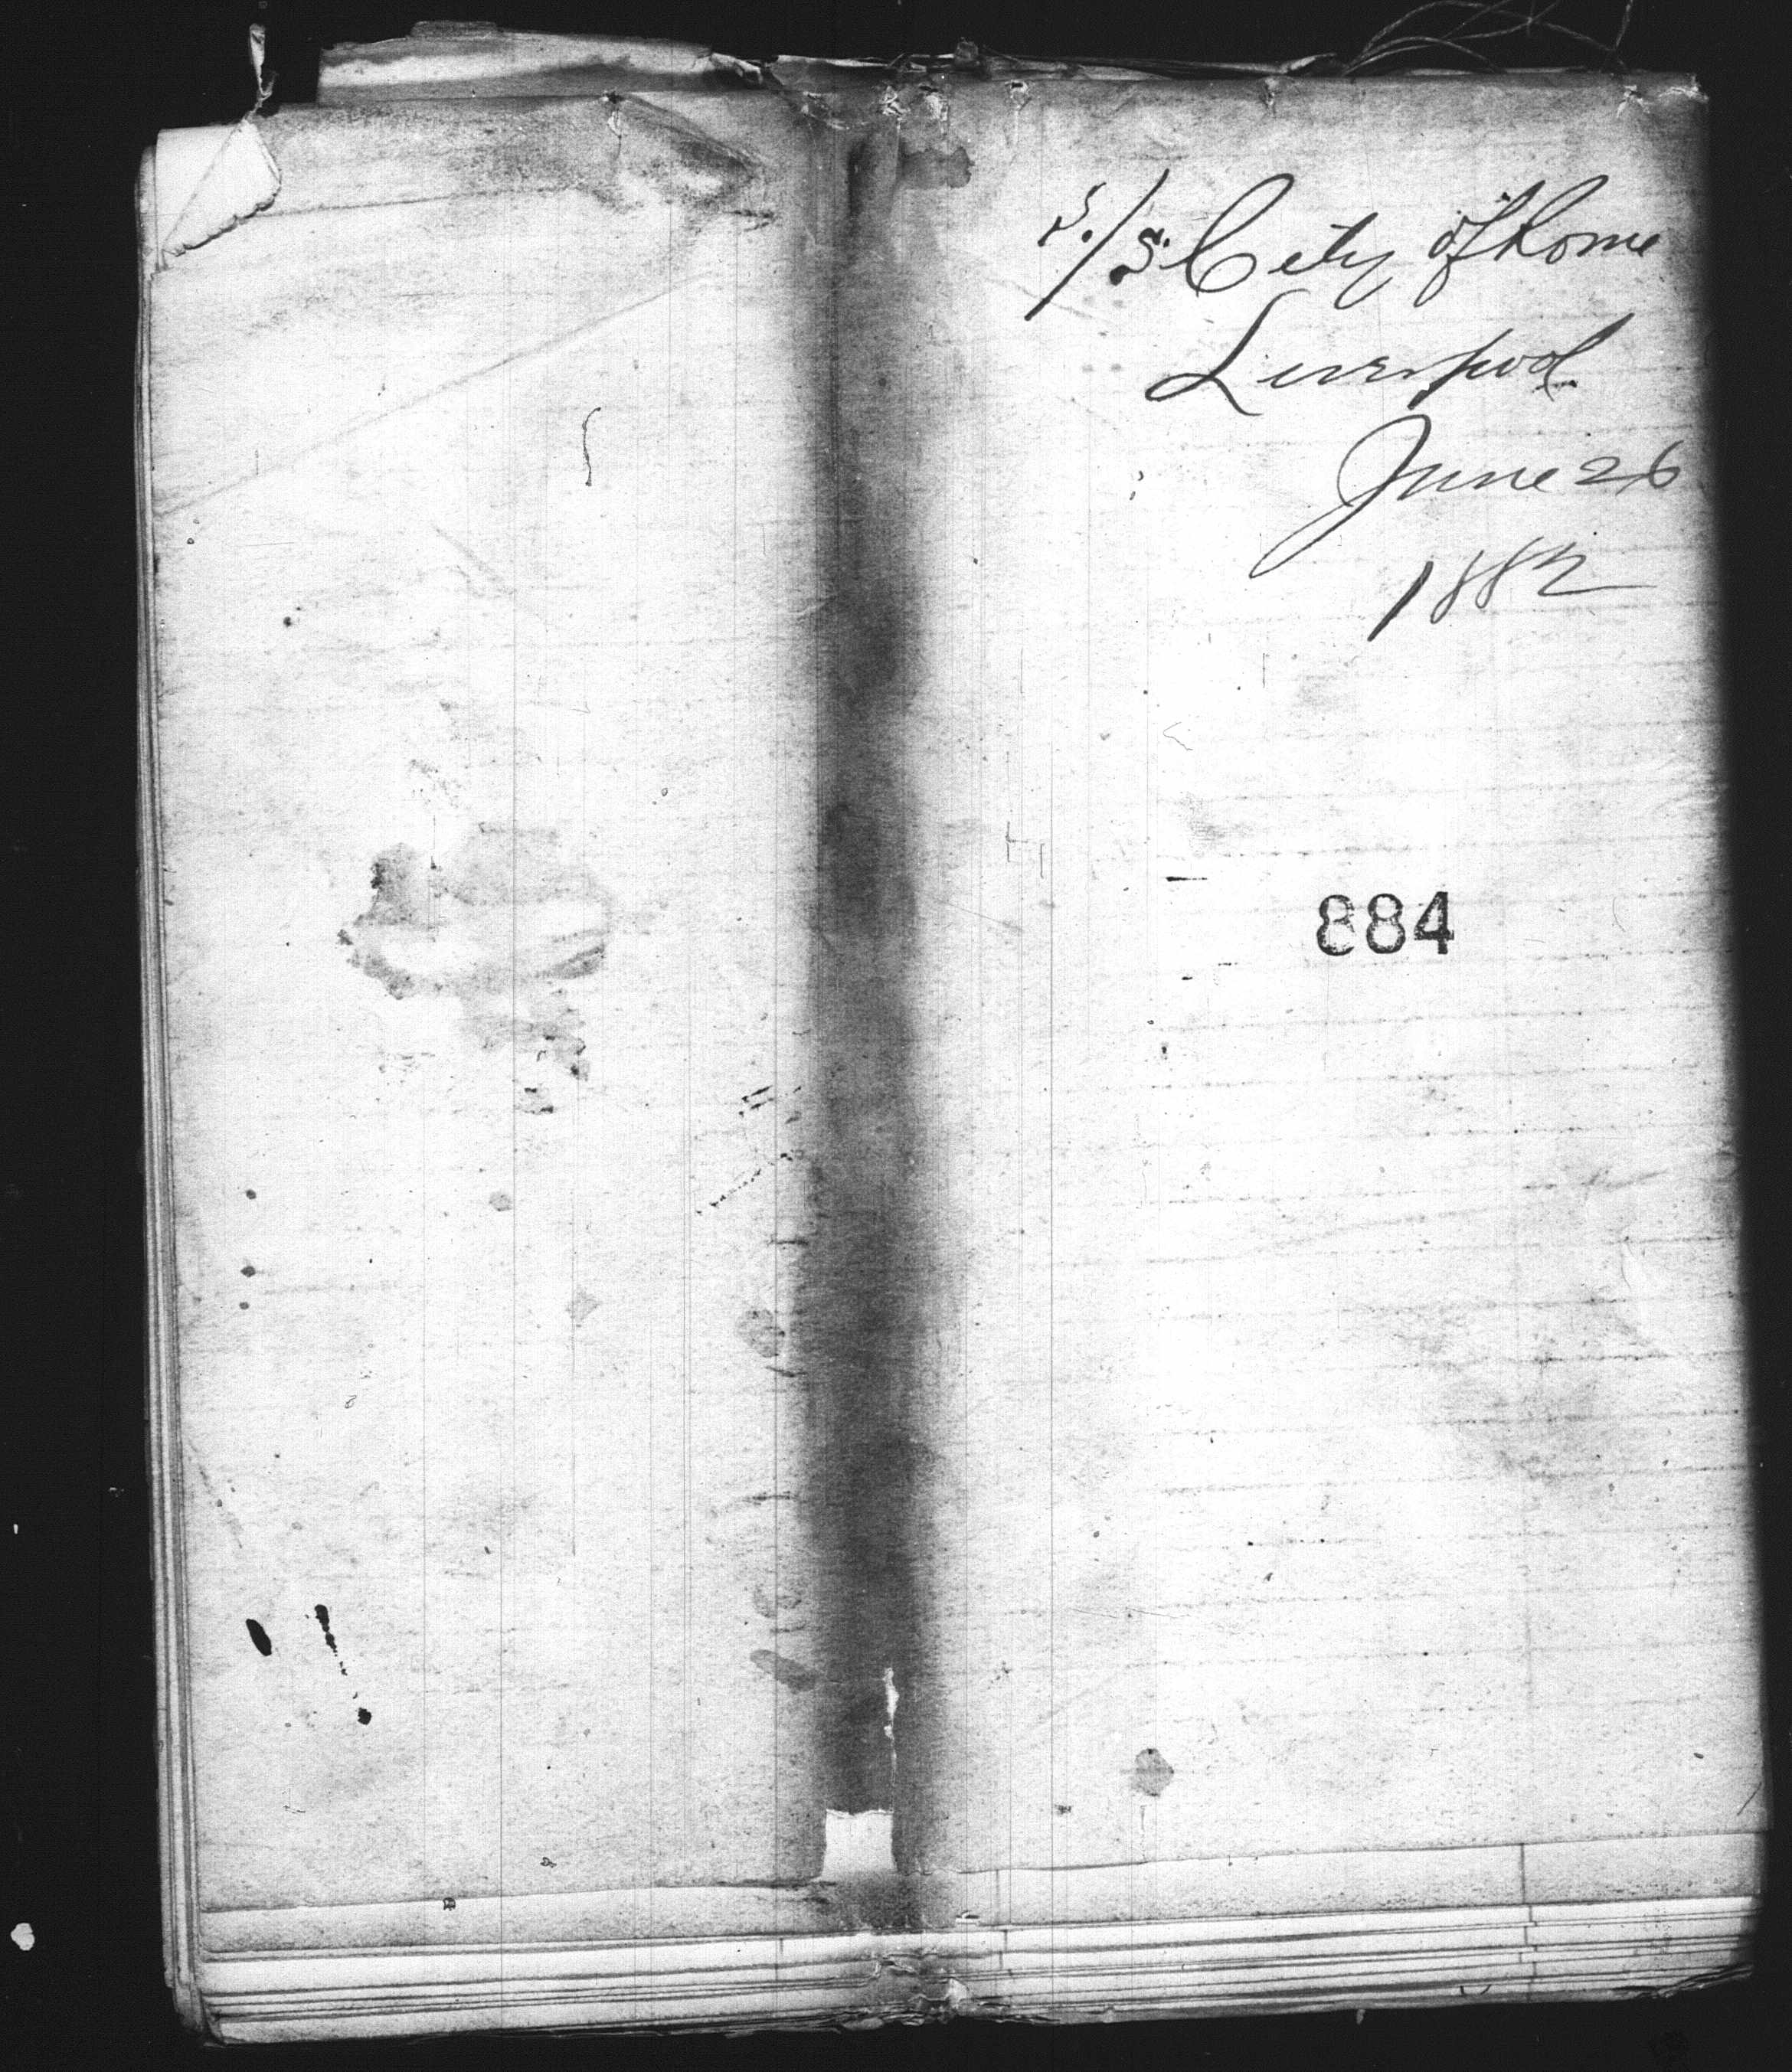 S./S. City of Rome
Liverpool
June 26
1882
884